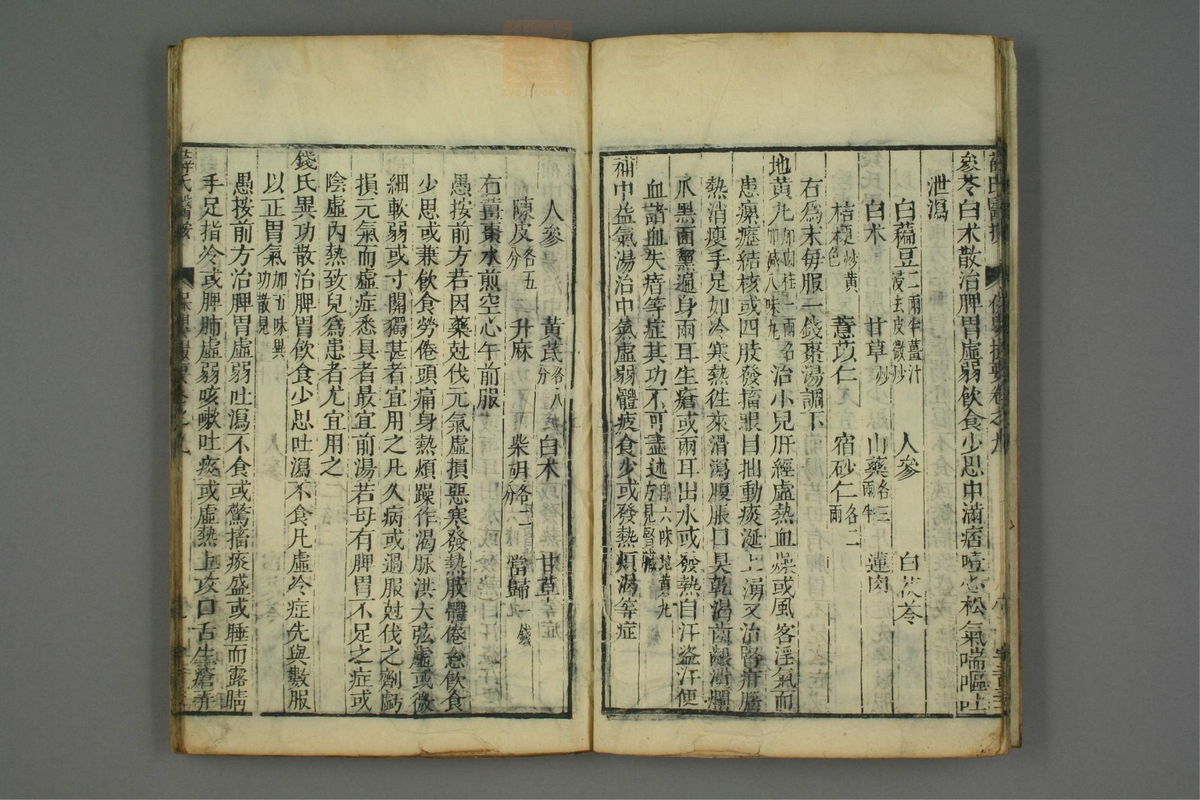 參苓白朮散治脾胃虛弱飲食少思中滿痞噎心忪氣喘嘔吐
泄瀉
白藊豆二兩半薑汁浸去皮微炒 人參 白茯苓
白术 甘草炒 山藥各三兩半 蓮肉
桔梗炒黃色 薏苡仁 宿砂仁各二兩
右爲末每服一錢棗湯調下
地黃丸加肉桂一兩名加減八味丸治小兒肝經虛熱血燥或風客淫氣而
患瘰癧結核或四肢發搐眼目抽動痰涎上湧又治腎疳腦
熱消瘦手足如冷寒熱徃來滑瀉腹脹口臭乾渴齒齦潰爛
爪黑面黧遍身兩耳生瘡或兩耳出水或發熱自汗盜汗便
血諸血失瘖等症其功不可盡述即六味地黃丸方見腎臟
補中益氣湯治中氣虛弱體疲食少或發熱煩渴等症
人參 黃芪各八分 白术 甘草
陳皮各五分 升麻 柴胡各二分 當歸一錢
右薑棗水煎空心午前服
愚按前方若因藥尅伐元氣虛損惡寒發熱肢體倦怠飲食
少思或兼飲食勞倦頭痛身熱煩躁作渴脉洪大弦虛或微
細軟弱或寸關獨甚者宜用之凡久病或過服尅伐之劑虧
損元氣而虛症悉具者最宜前湯若母有脾胃不足之症或
陰虛內熱致兒爲患者尤宜用之
錢氏異功散治脾胃飲食少思吐瀉不食凡虛冷症先與數服
以正胃氣加五味異功散見
愚按前方治脾胃虛弱吐瀉不食或驚搐痰盛或睡而露睛
手足指冷或脾肺虛弱咳嗽吐痰或虛熱上攻口舌生瘡弄